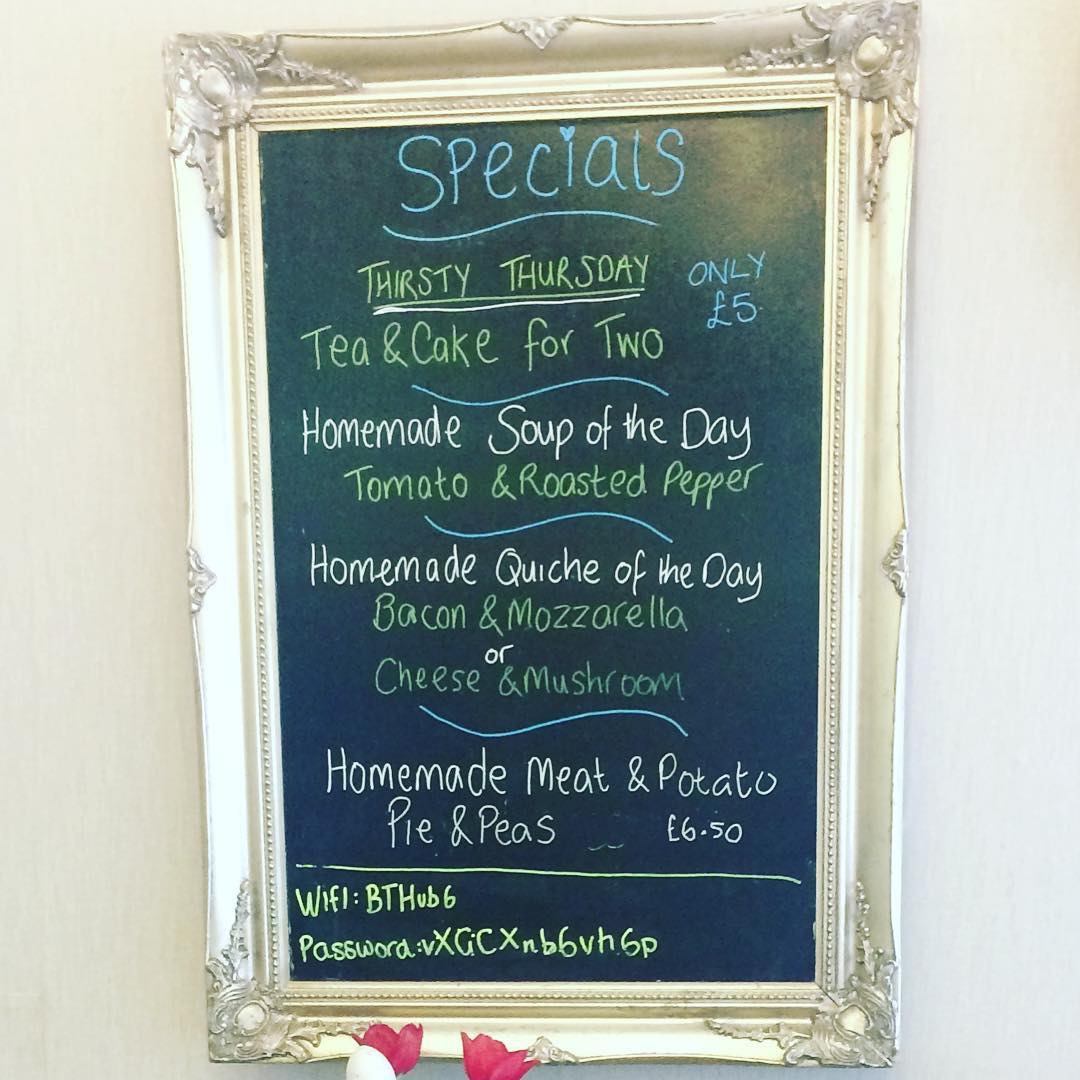 Specials
THIRSTY THURSDAY
ONLY £5
Tea & Cake for Two
Homemade Soup of the Day
Tomato & Roasted Pepper
Homemade Quiche of the Day
Bacon & Mozzarella
or
Cheese & Mushroom
Homemade Meat & Potato
Pie & Peas £6.50
WIFI: BTHub6
Password: vXGiCXnb6vh6p